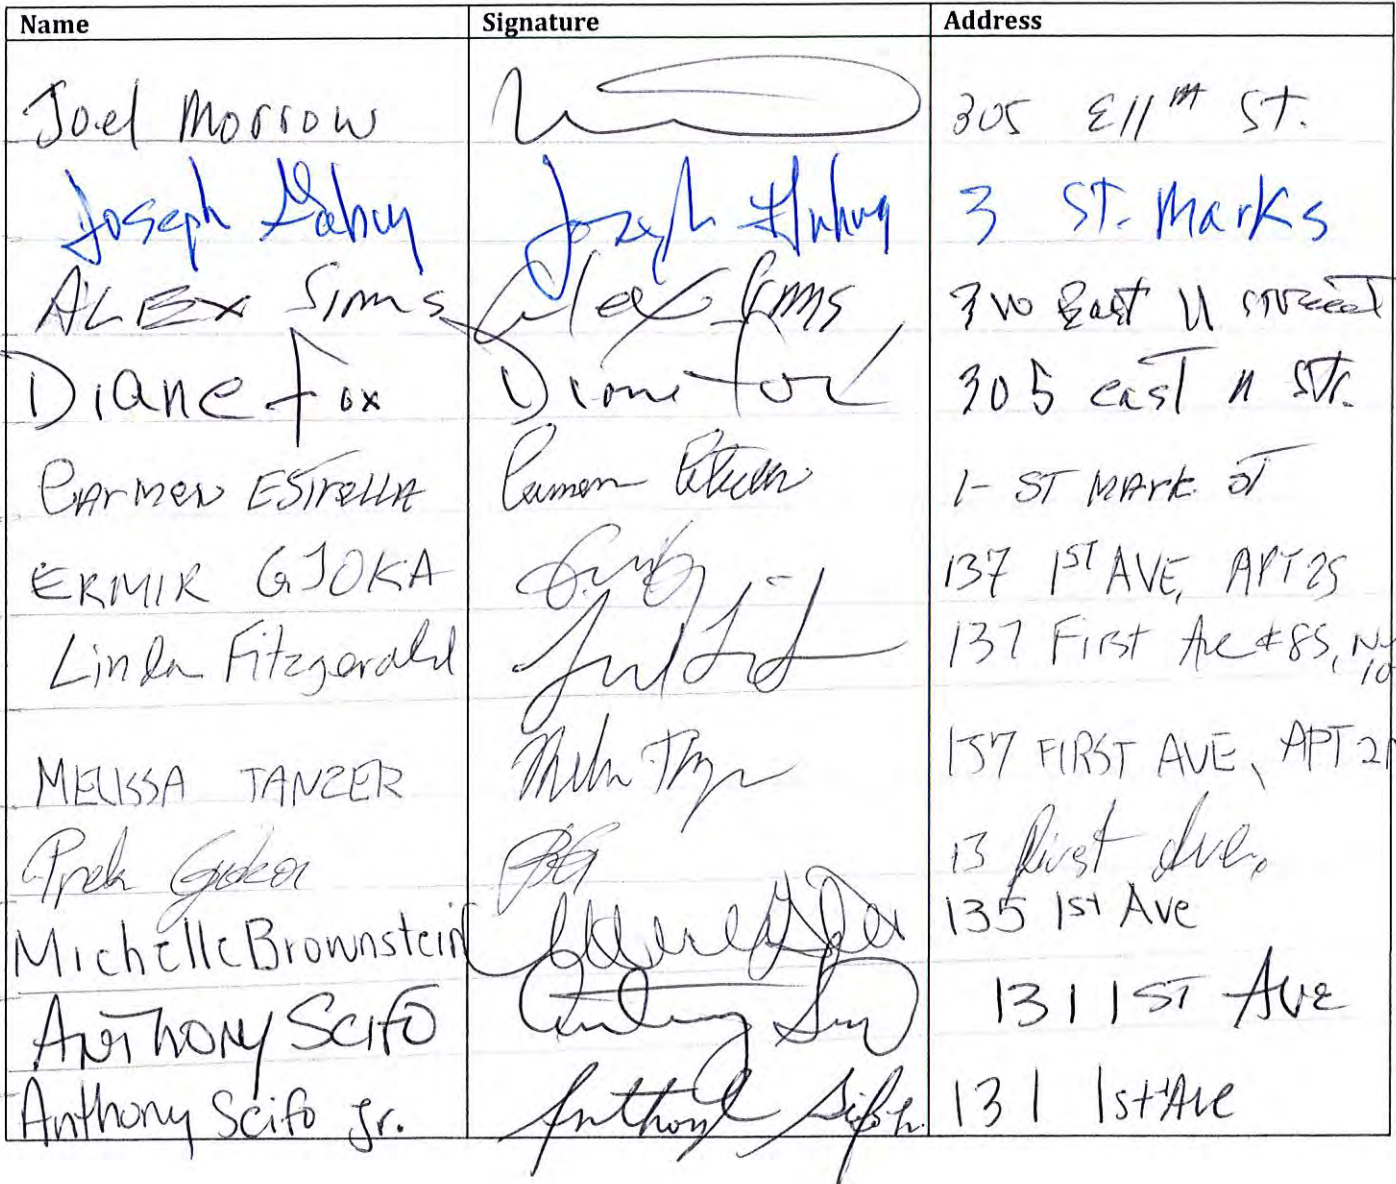 Name Signature Address
Joel Morrow 305 E 11TH ST.
Joseph Joseph 3 ST. Marks
ALEX Simms Alex Simms 310 East 11 street
Diane Fox Diane Fox 305 east 11 Str.
CARMEN ESTRELLA Carmen 1- ST MARK ST
ERMIR GJOKA 137 1ST AVE, APT 2S
Linda Fitzgerald 137 First Ave #8S, NY
10
MELISSA TANZER 137 FIRST AVE, APT 2
Prek Gjoka 13 first Ave.
Michelle Brownstein 135 1st Ave
ANTHONY SCIFO Anthony 131 1ST AVE
Anthony Scifo Jr. Anthony Scifo Jr. 131 1st Ave